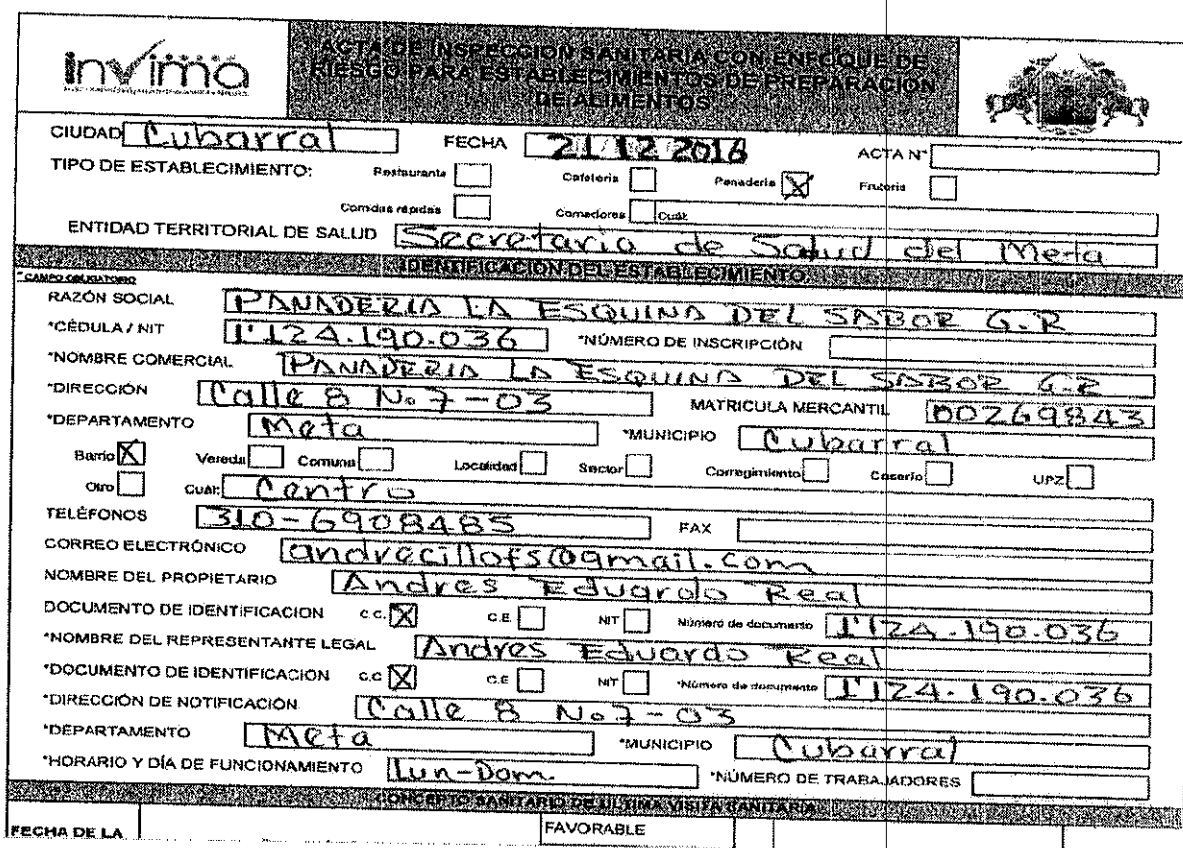 invima
ACTA DE INSPECCIÓN SANITARIA CON ENFOQUE DE
RIESGO PARA ESTABLECIMIENTOS DE PREPARACIÓN
DE ALIMENTOS
CIUDAD Cubarral FECHA 21 12 2016 ACTA N°
TIPO DE ESTABLECIMIENTO: Restaurante Cafeteria Panaderia X Fruteria
Comidas rápidas Comedores Cuál:
ENTIDAD TERRITORIAL DE SALUD Secretaria de Salud del Meta
IDENTIFICACIÓN DEL ESTABLECIMIENTO
*CAMPO OBLIGATORIO
RAZÓN SOCIAL PANADERIA LA ESQUINA DEL SABOR G.R
*CÉDULA / NIT 1'124.190.036 *NÚMERO DE INSCRIPCIÓN
*NOMBRE COMERCIAL PANADERIA LA ESQUINA DEL SABOR G.R
*DIRECCIÓN Calle 8 No 7-03 MATRICULA MERCANTIL 00269843
*DEPARTAMENTO Meta *MUNICIPIO Cubarral
Barrio X Vereda Comuna Localidad Sector Corregimiento Caserío UPZ
Otro Cuál: Centro
TELÉFONOS 310-6908485 FAX
CORREO ELECTRÓNICO andrecillofs@gmail.com
NOMBRE DEL PROPIETARIO Andres Eduardo Real
DOCUMENTO DE IDENTIFICACION C.C. X C.E. NIT Número de documento 1'124.190.036
*NOMBRE DEL REPRESENTANTE LEGAL Andres Eduardo Real
*DOCUMENTO DE IDENTIFICACION C.C X C.E NIT *Número de documento 1'124.190.036
*DIRECCIÓN DE NOTIFICACIÓN Calle 8 No 7-03
*DEPARTAMENTO Meta *MUNICIPIO Cubarral
*HORARIO Y DÍA DE FUNCIONAMIENTO Lun-Dom *NÚMERO DE TRABAJADORES
CONCEPTO SANITARIO DE ULTIMA VISITA SANITARIA
FECHA DE LA FAVORABLE